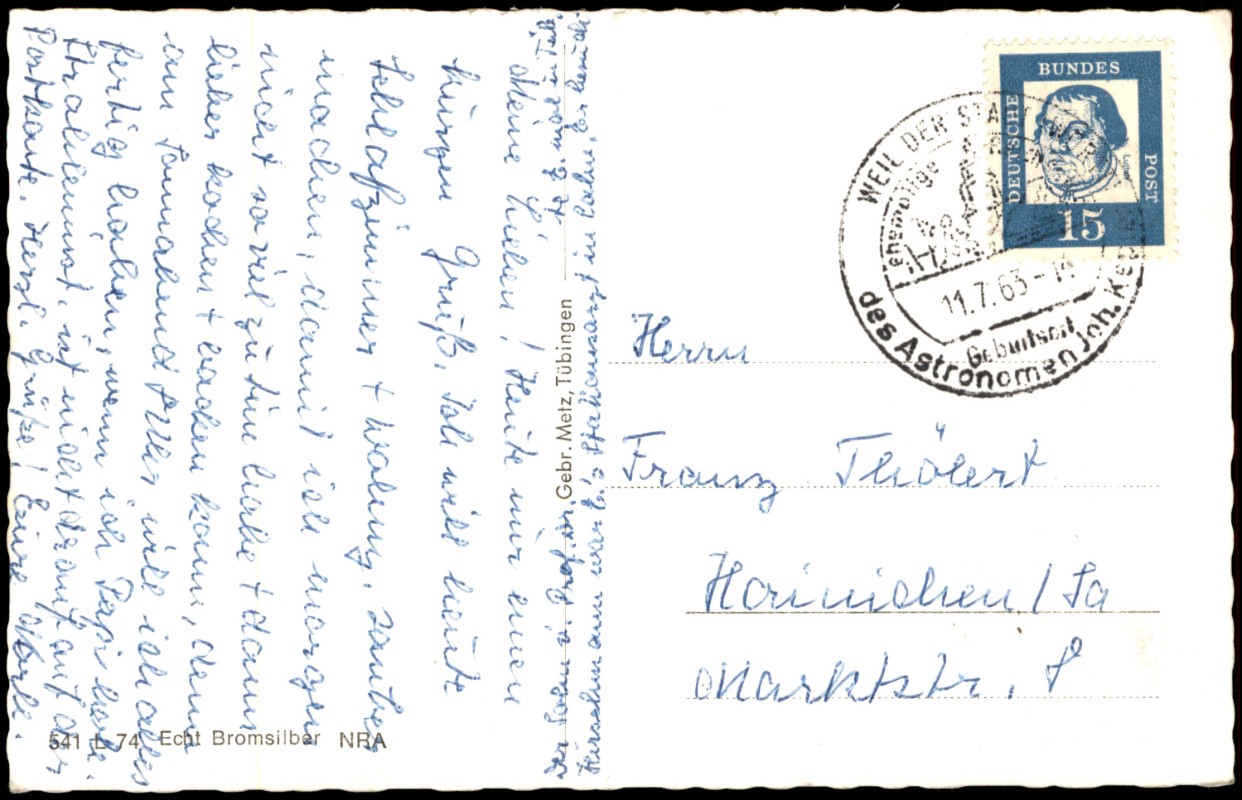 Meine Lieben! Heute nur einen
kurzen Gruß. Ich will heute
Schlafzimmer + Wohng. sauber
machen, damit ich morgen
nicht so viel zu tun habe + dann
lieber kochen + backen kann, denn
am Sonnabend will ich alles
fertig haben, wenn ich Papi hole.
ist nicht drauf auf der
Postkarte. Herzl. Grüße! Eure
Der Sohn v. Prof. Dr.
Hirschmann war b. Stationsarzt in
Gebr. Metz, Tübingen
541 L 74 Echt Bromsilber NRA
BUNDES
DEUTSCHE
POST
Luther
15
WEIL DER STADT
ehemalige
11.7.63-14
Geburtsort
des Astronomen Joh. Kep
Herrn
Franz Thölert
Hainichen / Sa
Marktstr. 8